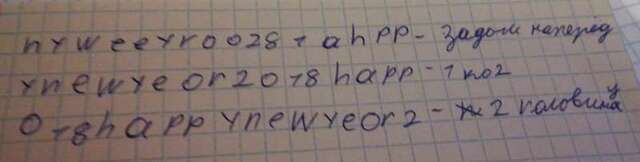 nYweeYr0028+ahpp - Задом наперед
Ynewyeor20+8happ - 1 ко2
0+8happYnewyeor2 - 2 половина